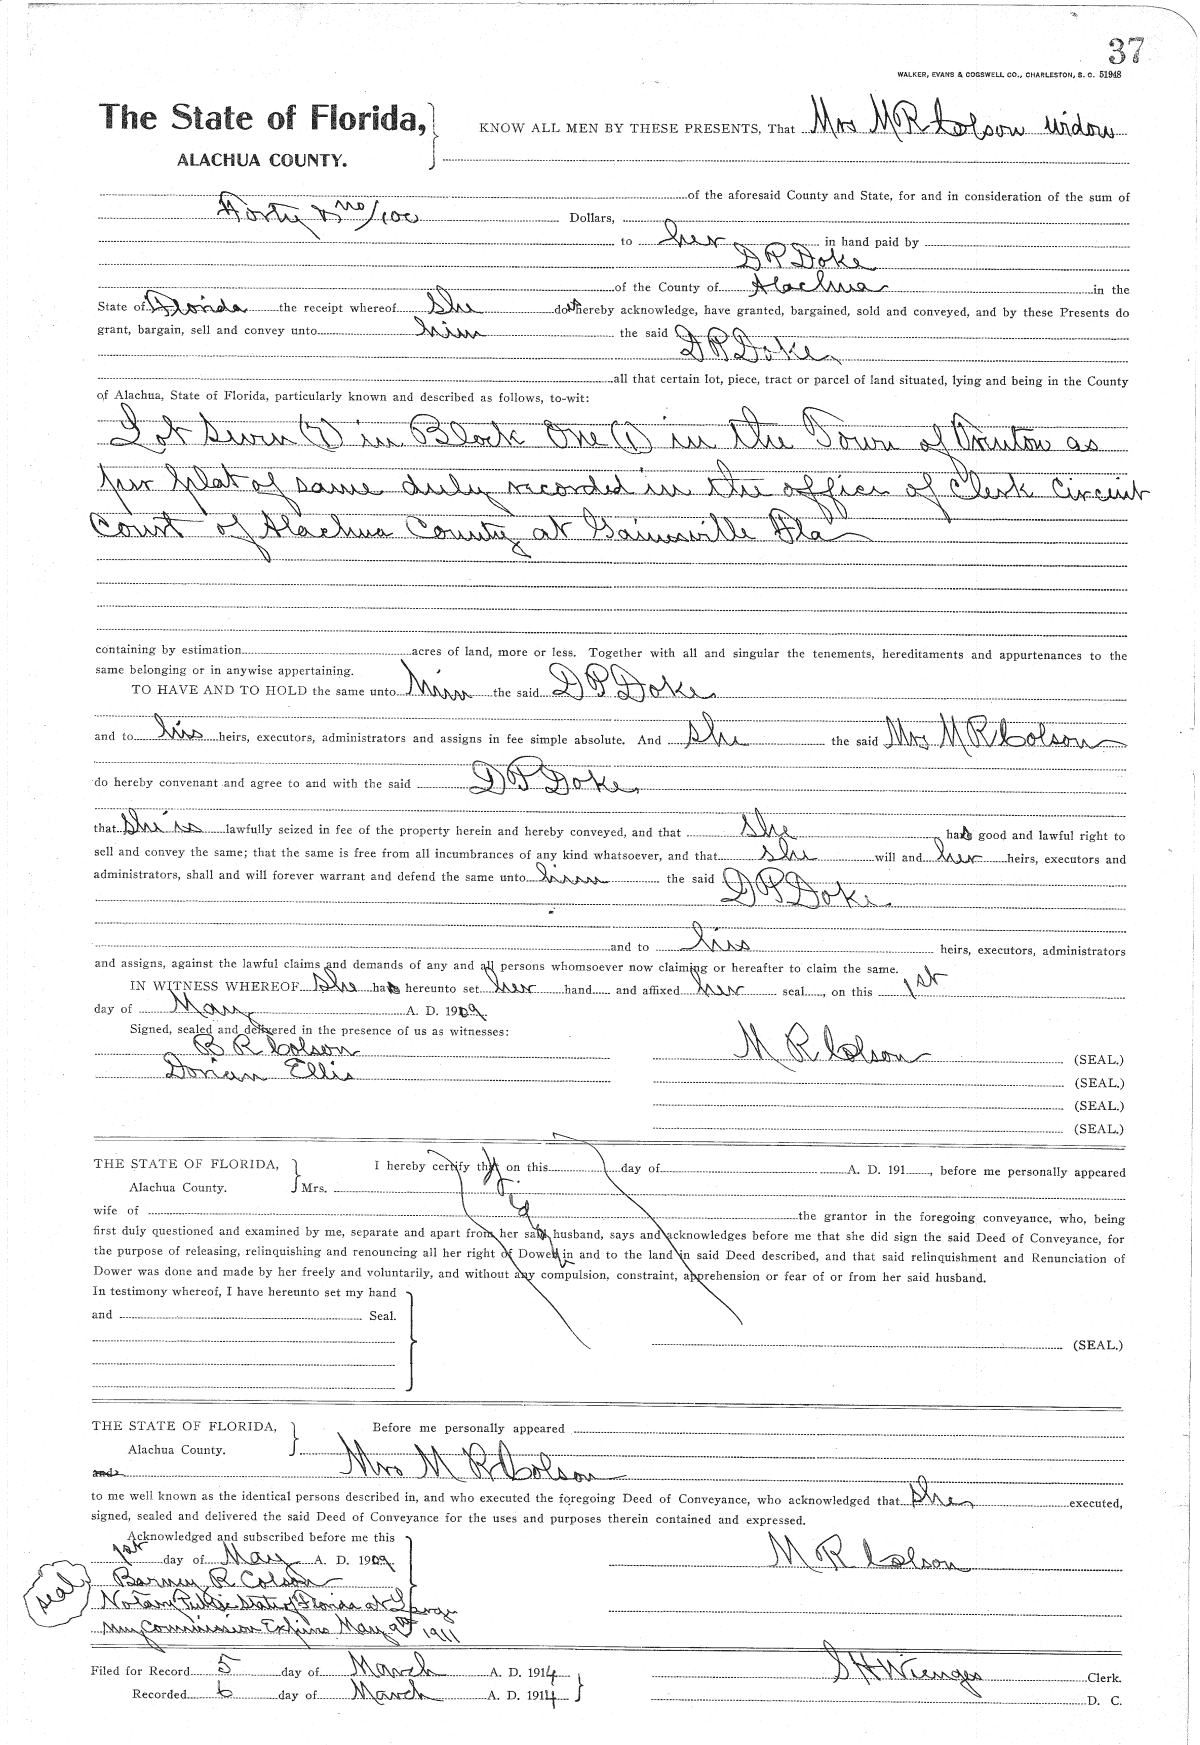 37
WALKER, EVANS & COGSWELL CO., CHARLESTON, S. C. 51948
The State of Florida, KNOW ALL MEN BY THESE PRESENTS, That Mrs M R Colson widow
ALACHUA COUNTY.
of the aforesaid County and State, for and in consideration of the sum of
Forty & no/100 Dollars,
to her in hand paid by
D P Doke
of the County of Alachua in the
State of Florida the receipt whereof She does hereby acknowledge, have granted, bargained, sold and conveyed, and by these Presents do
grant, bargain, sell and convey unto him the said D P Doke
all that certain lot, piece, tract or parcel of land situated, lying and being in the County
of Alachua, State of Florida, particularly known and described as follows, to-wit:
Lot Seven (7) in Block One (1) in the Town of as
per plat of same duly recorded in the office of Clerk Circuit
Court of Alachua County at Gainesville Fla
containing by estimation acres of land, more or less. Together with all and singular the tenements, hereditaments and appurtenances to the
same belonging or in anywise appertaining.
TO HAVE AND TO HOLD the same unto him the said D P Doke
and to his heirs, executors, administrators and assigns in fee simple absolute. And she the said Mrs M R Colson
do hereby convenant and agree to and with the said D P Doke
that she is lawfully seized in fee of the property herein and hereby conveyed, and that she has good and lawful right to
sell and convey the same; that the same is free from all incumbrances of any kind whatsoever, and that she will and her heirs, executors and
administrators, shall and will forever warrant and defend the same unto him the said D P Doke
and to his heirs, executors, administrators
and assigns, against the lawful claims and demands of any and all persons whomsoever now claiming or hereafter to claim the same.
IN WITNESS WHEREOF She has hereunto set her hand and affixed her seal, on this 1st
day of May A. D. 1909.
Signed, sealed and delivered in the presence of us as witnesses:
B R Colson M R Colson (SEAL.)
Dorian Ellis (SEAL.)
(SEAL.)
(SEAL.)
THE STATE OF FLORIDA, I hereby certify that on this day of A. D. 191 , before me personally appeared
Alachua County. Mrs.
wife of the grantor in the foregoing conveyance, who, being
first duly questioned and examined by me, separate and apart from her said husband, says and acknowledges before me that she did sign the said Deed of Conveyance, for
the purpose of releasing, relinquishing and renouncing all her right of Dower in and to the land in said Deed described, and that said relinquishment and Renunciation of
Dower was done and made by her freely and voluntarily, and without any compulsion, constraint, apprehension or fear of or from her said husband.
In testimony whereof, I have hereunto set my hand
and Seal.
(SEAL.)
THE STATE OF FLORIDA, Before me personally appeared
Alachua County.
and Mrs M R Colson
to me well known as the identical persons described in, and who executed the foregoing Deed of Conveyance, who acknowledged that She executed,
signed, sealed and delivered the said Deed of Conveyance for the uses and purposes therein contained and expressed.
Acknowledged and subscribed before me this
1st day of May A. D. 1909. M R Colson
seal Barney R Colson
Notary Public State of Florida at Large
My Commission Expires May 1911
Filed for Record 5 day of March A. D. 1914 S H Wienges Clerk.
Recorded 6 day of March A. D. 1914 D. C.